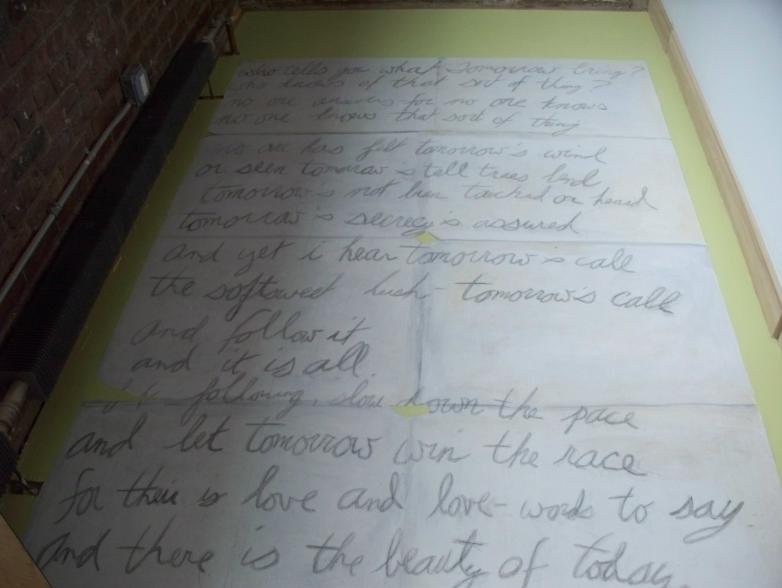 who tells you what tomorrow brings?
who knows of that sort of thing?
no one answers for no one knows
no one knows that sort of thing
no one has felt tomorrow's wind
or seen tomorrow's tell trees bend
tomorrow's not been touched or heard
tomorrow's secrecy is assured
and yet i hear tomorrow's call
the softowed hush - tomorrow's call
and follow it
and it is all.
following, slow down the pace
and let tomorrow win the race
for there is love and love-words to say
and there is the beauty of today